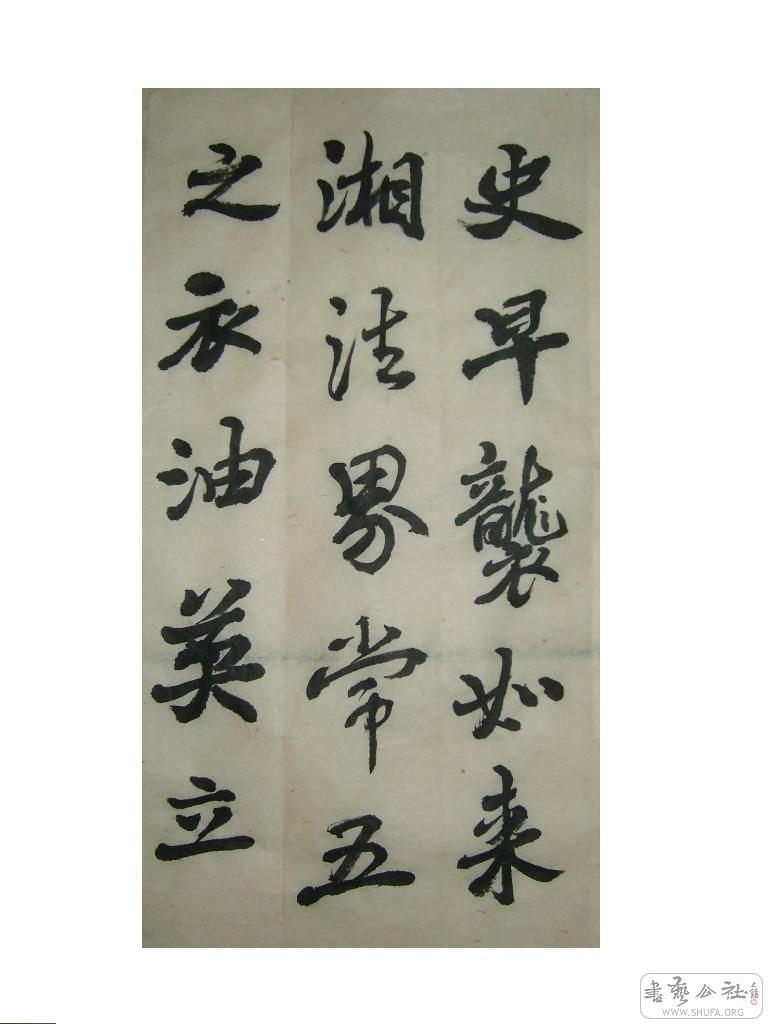 史早襲如来
湘法界常五
之衣油英立
書藝公社
WWW.SHUFA.ORG